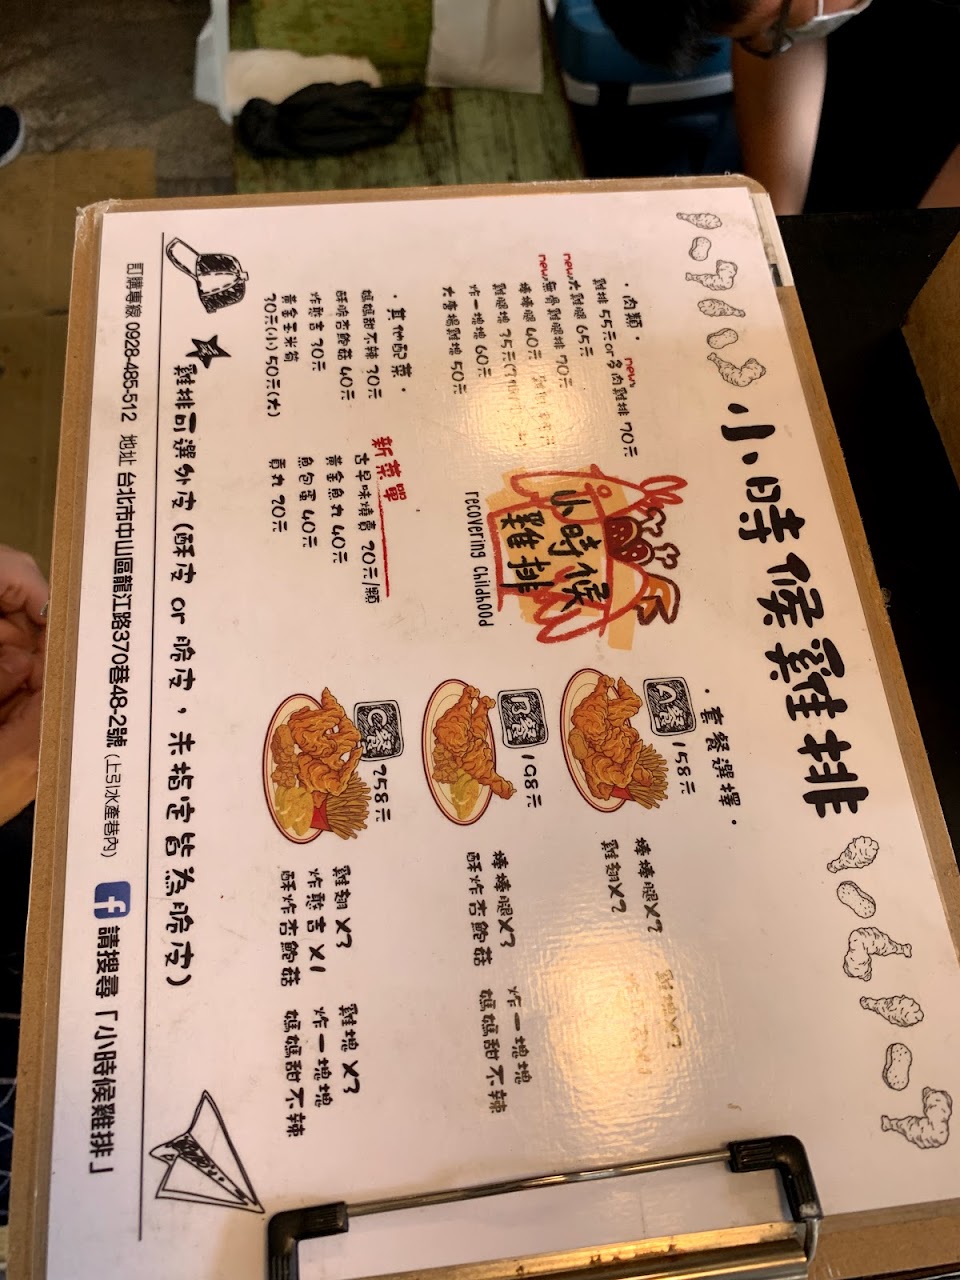 小時候雞排
・肉類・
雞排 55元 or new 多肉雞排 70元
new 大雞腿 65元
new 無骨雞腿排 70元
棒棒腿 40元
雞腿塊 35元
炸一塊塊 60元
大賣場雞塊 50元
・其他配菜・
媽媽甜不辣 30元
酥炸杏鮑菇 40元
炸薯吉 30元
黃金玉米筍
30元(小) 50元(大)
新菜單
古早味燒賣 20元/顆
黃金魚丸 40元
魚包蛋 40元
貢丸 20元
小時候
雞排
recovering childhood
・套餐選擇・
A餐 158元
棒棒腿X2
雞翅X2
B餐 198元
棒棒腿X3 炸一塊塊
酥炸杏鮑菇 媽媽甜不辣
C餐 258元
雞翅X3 雞塊X3
炸薯吉X1 炸一塊塊
酥炸杏鮑菇 媽媽甜不辣
雞排可選外皮(酥皮 or 脆皮，未指定皆為脆皮)
訂購專線 0928-485-512 地址 台北市中山區龍江路370巷48-2號 (上引水產巷內) f 請搜尋「小時候雞排」